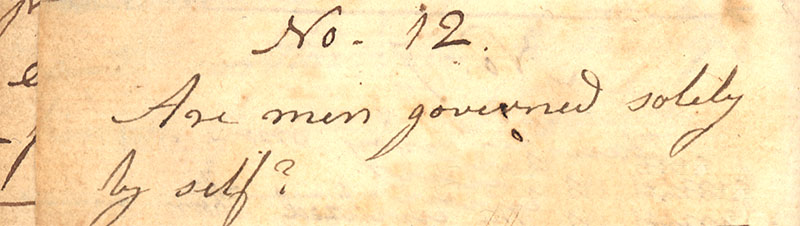 No. 12.
Are men governed solely
by self?